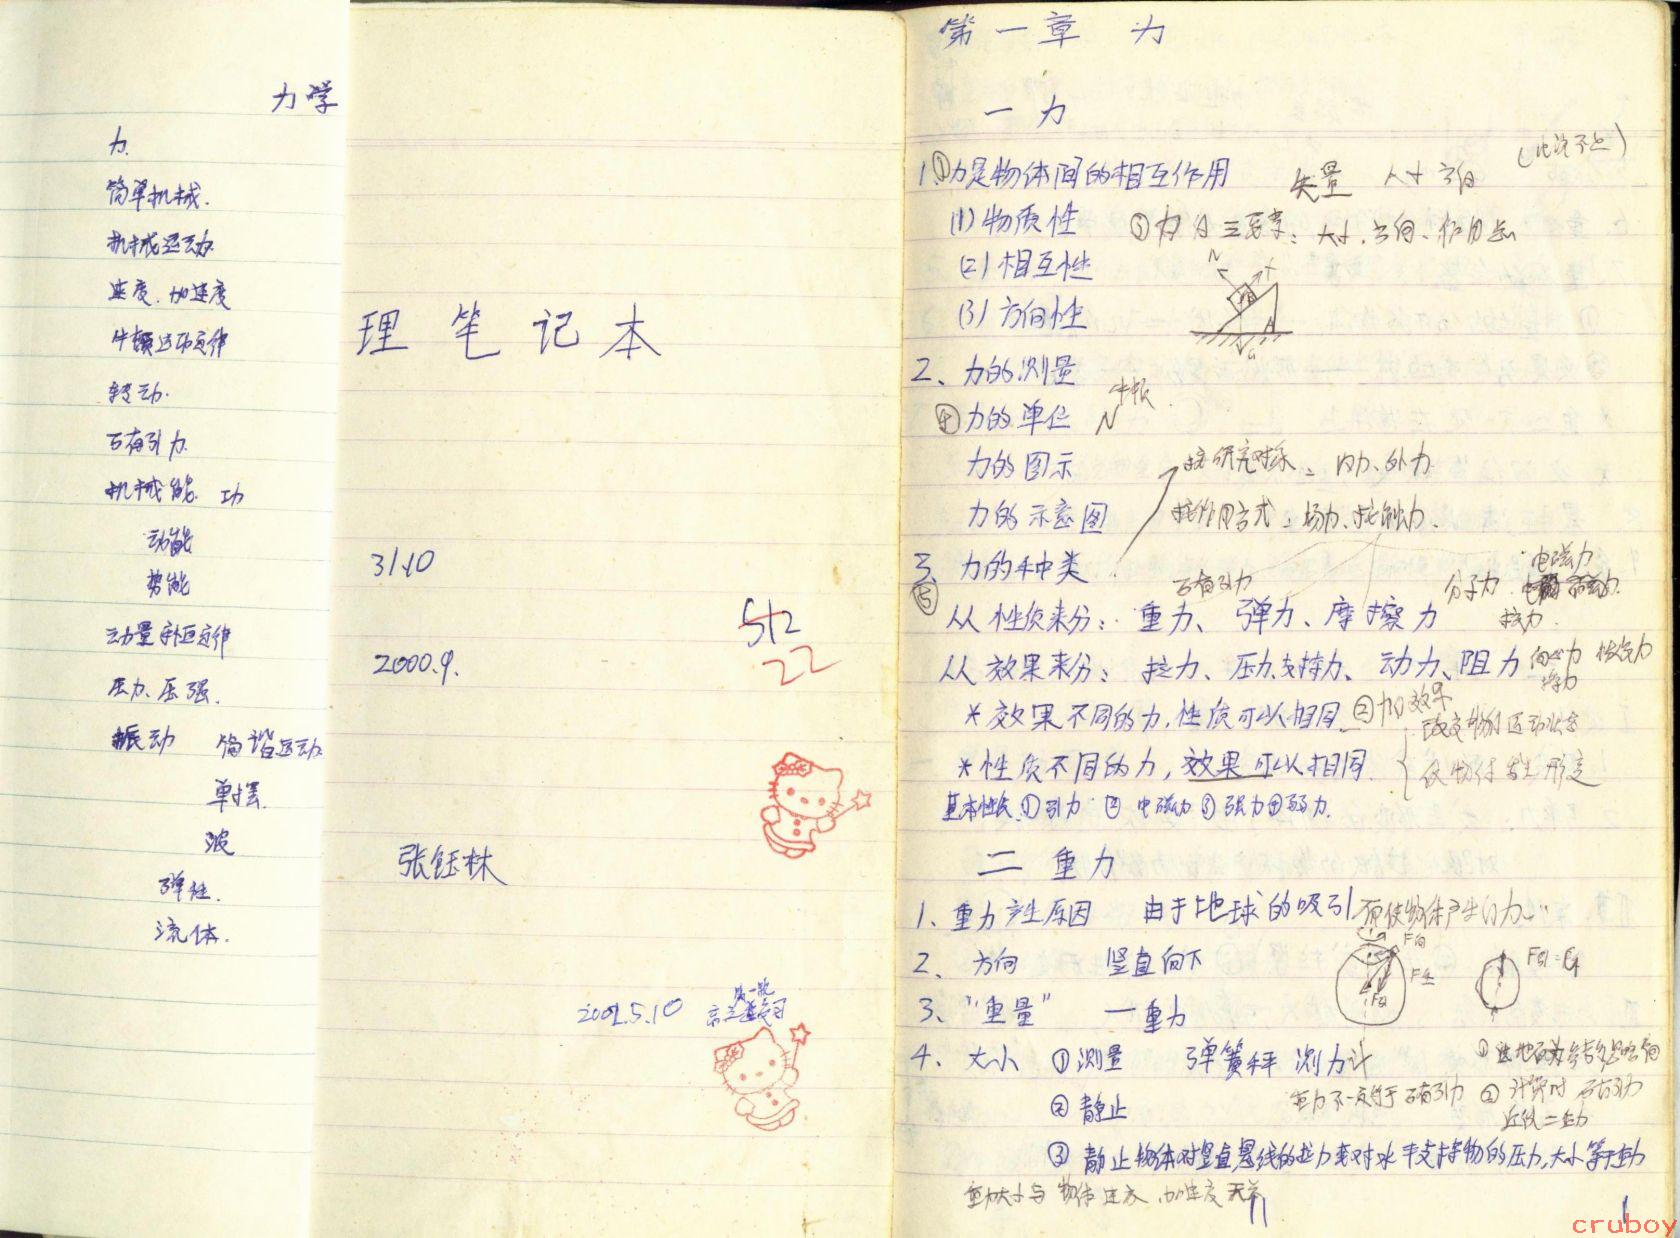 力学
力
简单机械.
机械运动
速度、加速度
牛顿运动定律
转动.
万有引力
机械能 功
动能
势能
动量守恒定律
压力、压强.
振动 简谐运动
单摆
波
弹性.
流体.
理笔记本
3140
512
22
2000.9.
张钰林
5.10
第一章 力
一 力
1.①力是物体间的相互作用 矢量 大小 方向
(1)物质性 ③力的三要素:大小、方向、作用点
(2)相互性
(3)方向性
N f
G
2、力的测量
④力的单位 N 牛顿.
力的图示 按研究对象:内力、外力
力的示意图 按作用方式:场力、接触力.
3、力的种类
⑤
万有引力 分子力 电磁力
从性质来分:重力、弹力、摩擦力
从效果来分:拉力、压力、支持力、动力、阻力 向心力 恢复力
*效果不同的力,性质可以相同 ②力的效果
改变物体运动状态
使物体发生形变
*性质不同的力,效果可以相同
基本性质 ①引力 ② 电磁力 ③强力④弱力.
二 重力
1、重力产生原因 由于地球的吸引而使物体产生的力
2、方向 竖直向下
F向
F引
F引=G
3、"重量" 一重力
4、大小 ①测量 弹簧秤 测力计
重力不一定等于万有引力 ②计算时 万有引力
近似=重力
②静止
③静止物体对竖直悬线的拉力或对水平支持物的压力,大小等于重力
重力大小与物体速度、加速度无关
1
cruboy